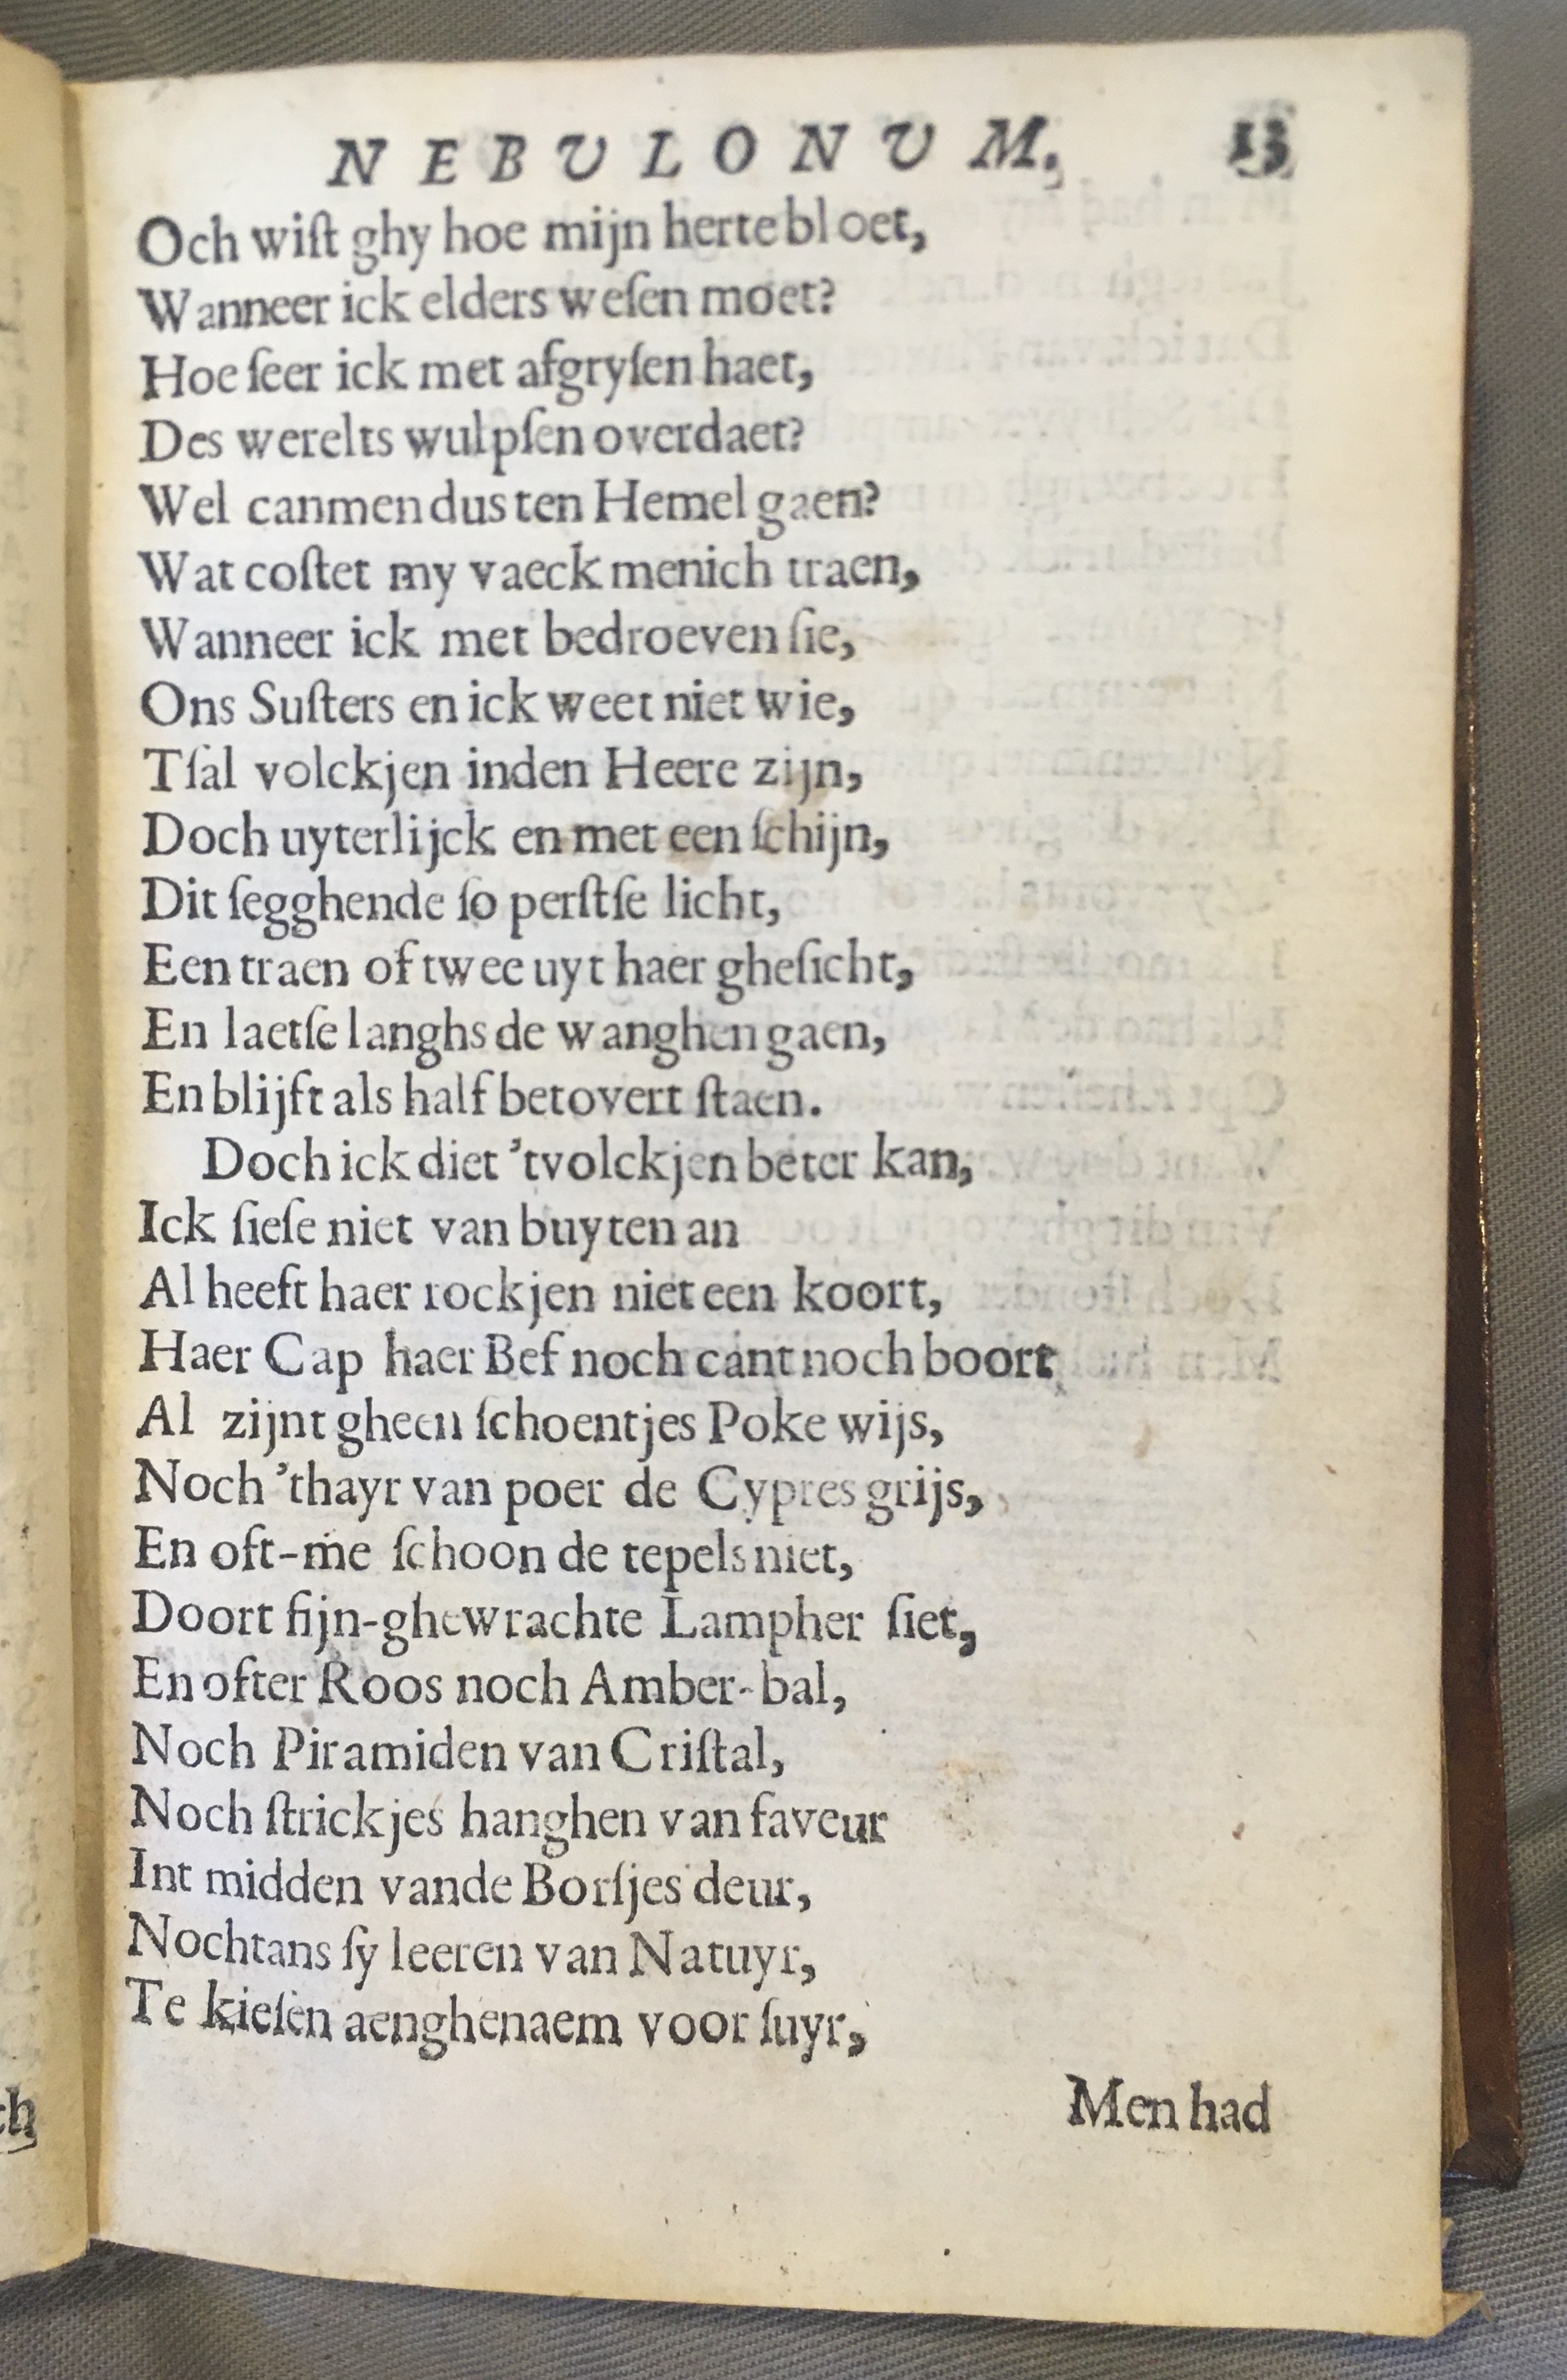 NEBVLONVM. 13
Och wiſt ghy hoe mijn herte bloet,
Wanneer ick elders weſen moet?
Hoe ſeer ick met afgryſen haet,
Des werelts wulpſen overdaet?
Wel canmen dus ten Hemel gaen?
Wat coſtet my vaeck menich traen,
Wanneer ick met bedroeven ſie,
Ons Suſters en ick weet niet wie,
Tſal volckjen inden Heere zijn,
Doch uyterlijck en met een ſchijn,
Dit ſegghende ſo perſtſe licht,
Een traen of twee uyt haer gheſicht,
En laetſe langhs de wanghen gaen,
En blijft als half betovert ſtaen.
Doch ick diet 'tvolckjen beter kan,
Ick ſieſe niet van buyten an
Al heeft haer rockjen niet een koort,
Haer Cap haer Bef noch cant noch boort,
Al zijnt gheen ſchoentjes Poke wijs,
Noch 'thayr van poer de Cypres grijs,
En oft-me ſchoon de tepels niet,
Doort fijn-ghewrachte Lampher ſiet,
En ofter Roos noch Amber-bal,
Noch Piramiden van Criſtal,
Noch ſtrickjes hanghen van faveur
Int midden vande Borſjes deur,
Nochtans ſy leeren van Natuyr,
Te kieſen aenghenaem voor ſuyr,
Men had